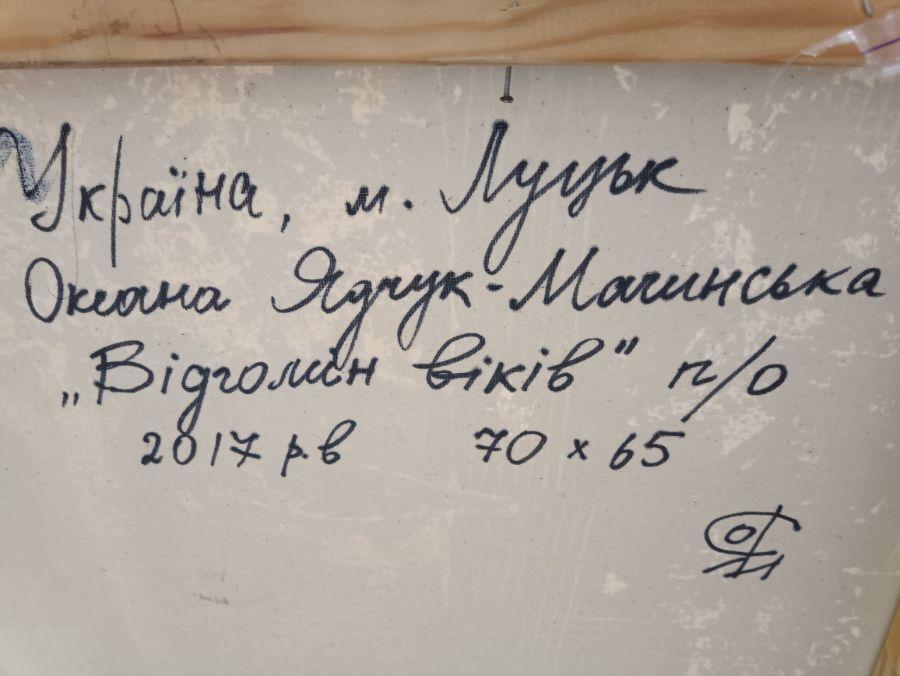 Україна, м. Луцьк
Оксана Ядчук-Мачинська
„Відгомін віків" п/о
2017 р.в 70 x 65